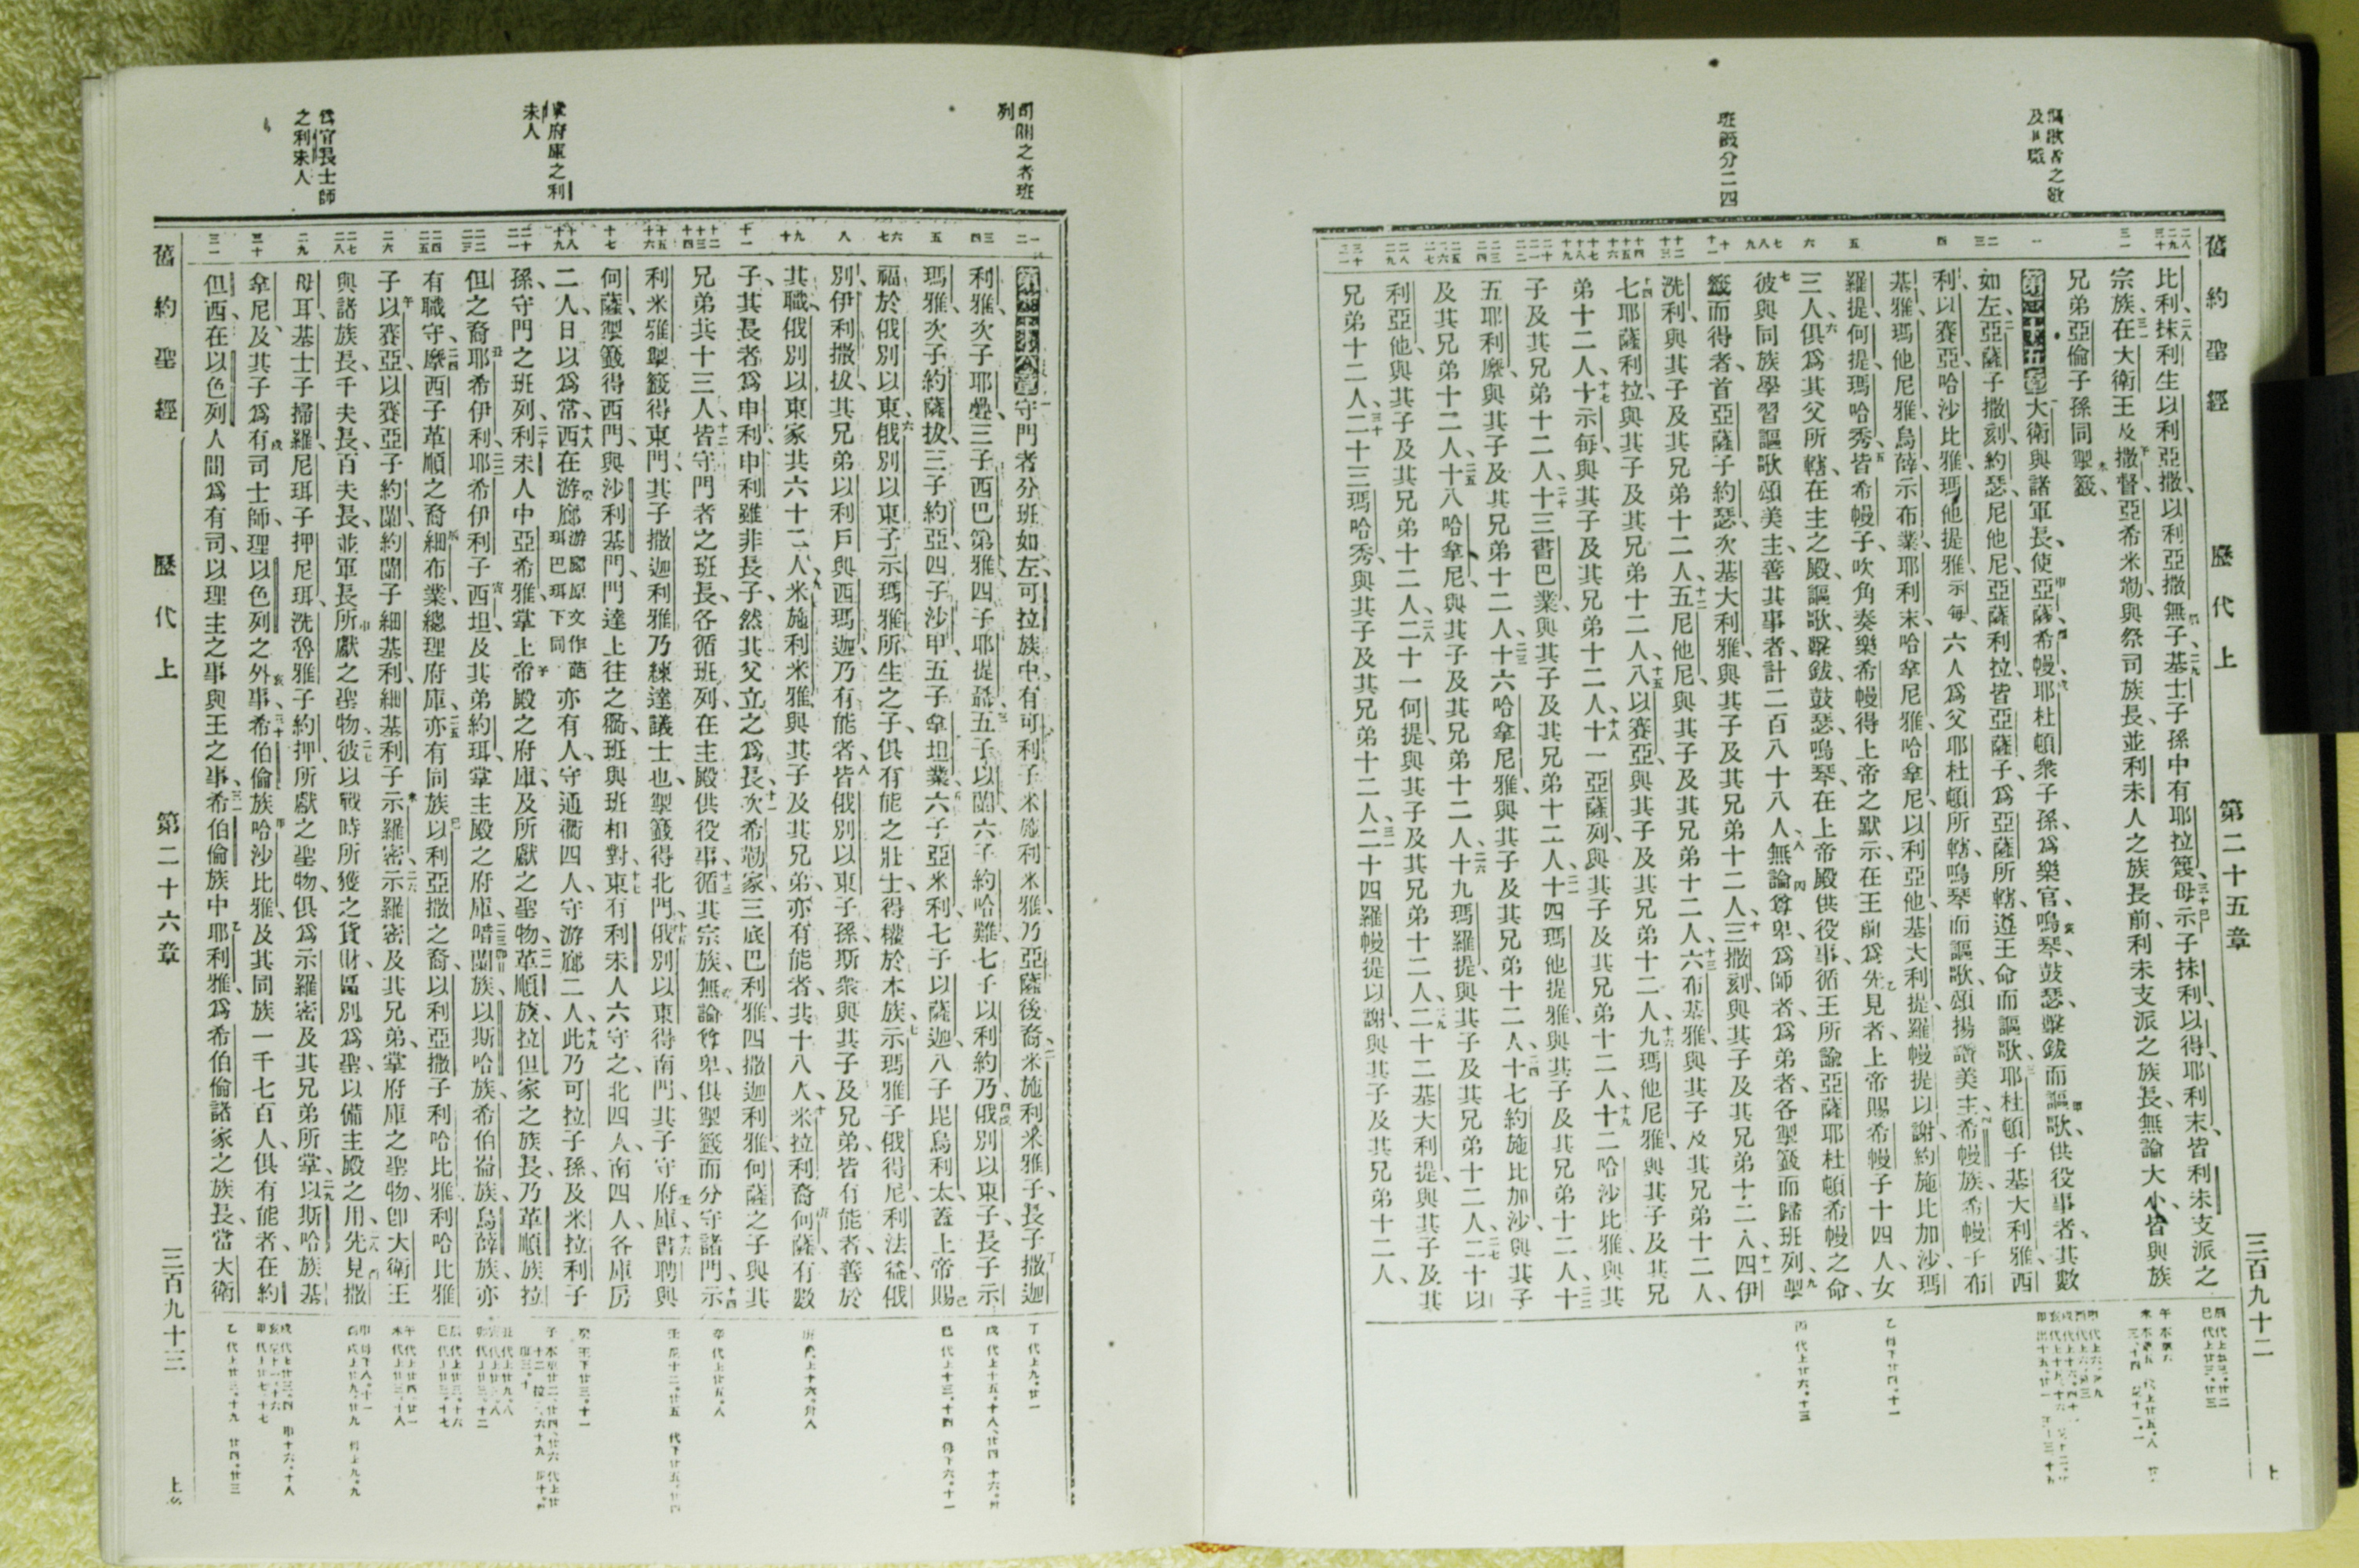 舊約聖經 歷代上 第二十五章 三百九十二
班籤分二四
比利抹利生以利亞撒以利亞撒無子基士子孫中有耶拉篾母示子抹利以得耶利末皆利未支派之
宗族在大衛王及撒督亞希米勒與祭司族長並利未人之族長前利未支派之族長無論大小皆與族
兄弟亞倫子孫同掣籤
第二十五章大衛與諸軍長使亞薩希幔耶杜頓衆子孫爲樂官鳴琴鼓瑟擊鈸而謳歌供役事者其數
如左亞薩子撒刻約瑟尼他尼亞薩利拉皆亞薩子爲亞薩所轄遵王命而謳歌耶杜頓子基大利雅西
利以賽亞哈沙比雅瑪他提雅示每六人爲父耶杜頓所轄鳴琴而謳歌頌揚讚美主希幔族希幔子布
基雅瑪他尼雅烏薛示布業耶利末哈拿尼雅哈拿尼以利亞他基大利提羅幔提以謝約施比加沙瑪
羅提何提瑪哈秀皆希幔子吹角奏樂希幔得上帝之默示在王前爲先見者上帝賜希幔子十四人女
三人俱爲其父所轄在主之殿謳歌擊鈸鼓瑟鳴琴在上帝殿供役事循王所諭亞薩耶杜頓希幔之命
彼與同族學習謳歌頌美主善其事者計二百八十八人無論尊卑爲師者爲弟者各掣籤而歸班列掣
籤而得者首亞薩子約瑟次基大利雅與其子及其兄弟十二人三撒刻與其子及其兄弟十二人四伊
洗利與其子及其兄弟十二人五尼他尼與其子及其兄弟十二人六布基雅與其子及其兄弟十二人
七耶薩利拉與其子及其兄弟十二人八以賽亞與其子及其兄弟十二人九瑪他尼雅與其子及其兄
弟十二人十示每與其子及其兄弟十二人十一亞薩列與其子及其兄弟十二人十二哈沙比雅與其
子及其兄弟十二人十三書巴業與其子及其兄弟十二人十四瑪他提雅與其子及其兄弟十二人十
五耶利摩與其子及其兄弟十二人十六哈拿尼雅與其子及其兄弟十二人十七約施比加沙與其子
及其兄弟十二人十八哈拿尼與其子及其兄弟十二人十九瑪羅提與其子及其兄弟十二人二十以
利亞他與其子及其兄弟十二人二十一何提與其子及其兄弟十二人二十二基大利提與其子及其
兄弟十二人二十三瑪哈秀與其子及其兄弟十二人二十四羅幔提以謝與其子及其兄弟十二人
司閽之者班列
掌府庫之利未人
爲官長士師之利未人
第二十六章守門者分班如左可拉族中有可利子米施利米雅乃亞薩後裔米施利米雅子長子撒迦
利雅次子耶疊三子西巴第雅四子耶提聶五子以蘭六子約哈難七子以利約乃俄別以東子長子示
瑪雅次子約薩拔三子約亞四子沙甲五子拿坦業六子亞米利七子以薩迦八子毘烏利太蓋上帝賜
福於俄別以東俄別以東子示瑪雅所生之子俱有能之壯士得權於本族示瑪雅子俄得尼利法益俄
別伊利撒拔其兄弟以利戶與西瑪迦乃有能者皆俄別以東子孫斯衆與其子及兄弟皆有能者善於
其職俄別以東家共六十二人米施利米雅與其子及其兄弟亦有能者共十八人米拉利裔何薩有數
子其長者爲申利申利雖非長子然其父立之爲長次希勒家三底巴利雅四撒迦利雅何薩之子與其
兄弟共十三人皆守門者之班長各循班列在主殿供役事循其宗族無論尊卑俱掣籤而分守諸門示
利米雅掣籤得東門其子撒迦利雅乃練達議士也掣籤得北門俄別以東得南門其子守府庫書聘與
何薩掣籤得西門與沙利基門門達上往之衢班與班相對東有利未人六守之北四人南四人各庫房
二人日以爲常西在游廊游廊原文作葩珥巴珥下同亦有人守通衢四人守游廊二人此乃可拉子孫及米拉利子
孫守門之班列利未人中亞希雅掌上帝殿之府庫及所獻之聖物革順族拉但家之族長乃革順族拉
但之裔耶希伊利耶希伊利子西坦及其弟約珥掌主殿之府庫暗蘭族以斯哈族希伯崙族烏薛族亦
有職守摩西子革順之裔細布業總理府庫亦有同族以利亞撒之裔以利亞撒子利哈比雅利哈比雅
子以賽亞以賽亞子約蘭約蘭子細基利細基利子示羅密示羅密及其兄弟掌府庫之聖物卽大衛王
與諸族長千夫長百夫長並軍長所獻之聖物彼以戰時所獲之貨財區別爲聖以備主殿之用先見撒
母耳基士子掃羅尼珥子押尼珥洗魯雅子約押所獻之聖物俱爲示羅密及其兄弟所掌以斯哈族基
拿尼及其子爲有司士師理以色列之外事希伯倫族哈沙比雅及其同族一千七百人俱有能者在約
但西在以色列人間爲有司以理主之事與王之事希伯倫族中耶利雅爲希伯倫諸家之族長當大衛
舊約聖經 歷代上 第二十六章 三百九十三